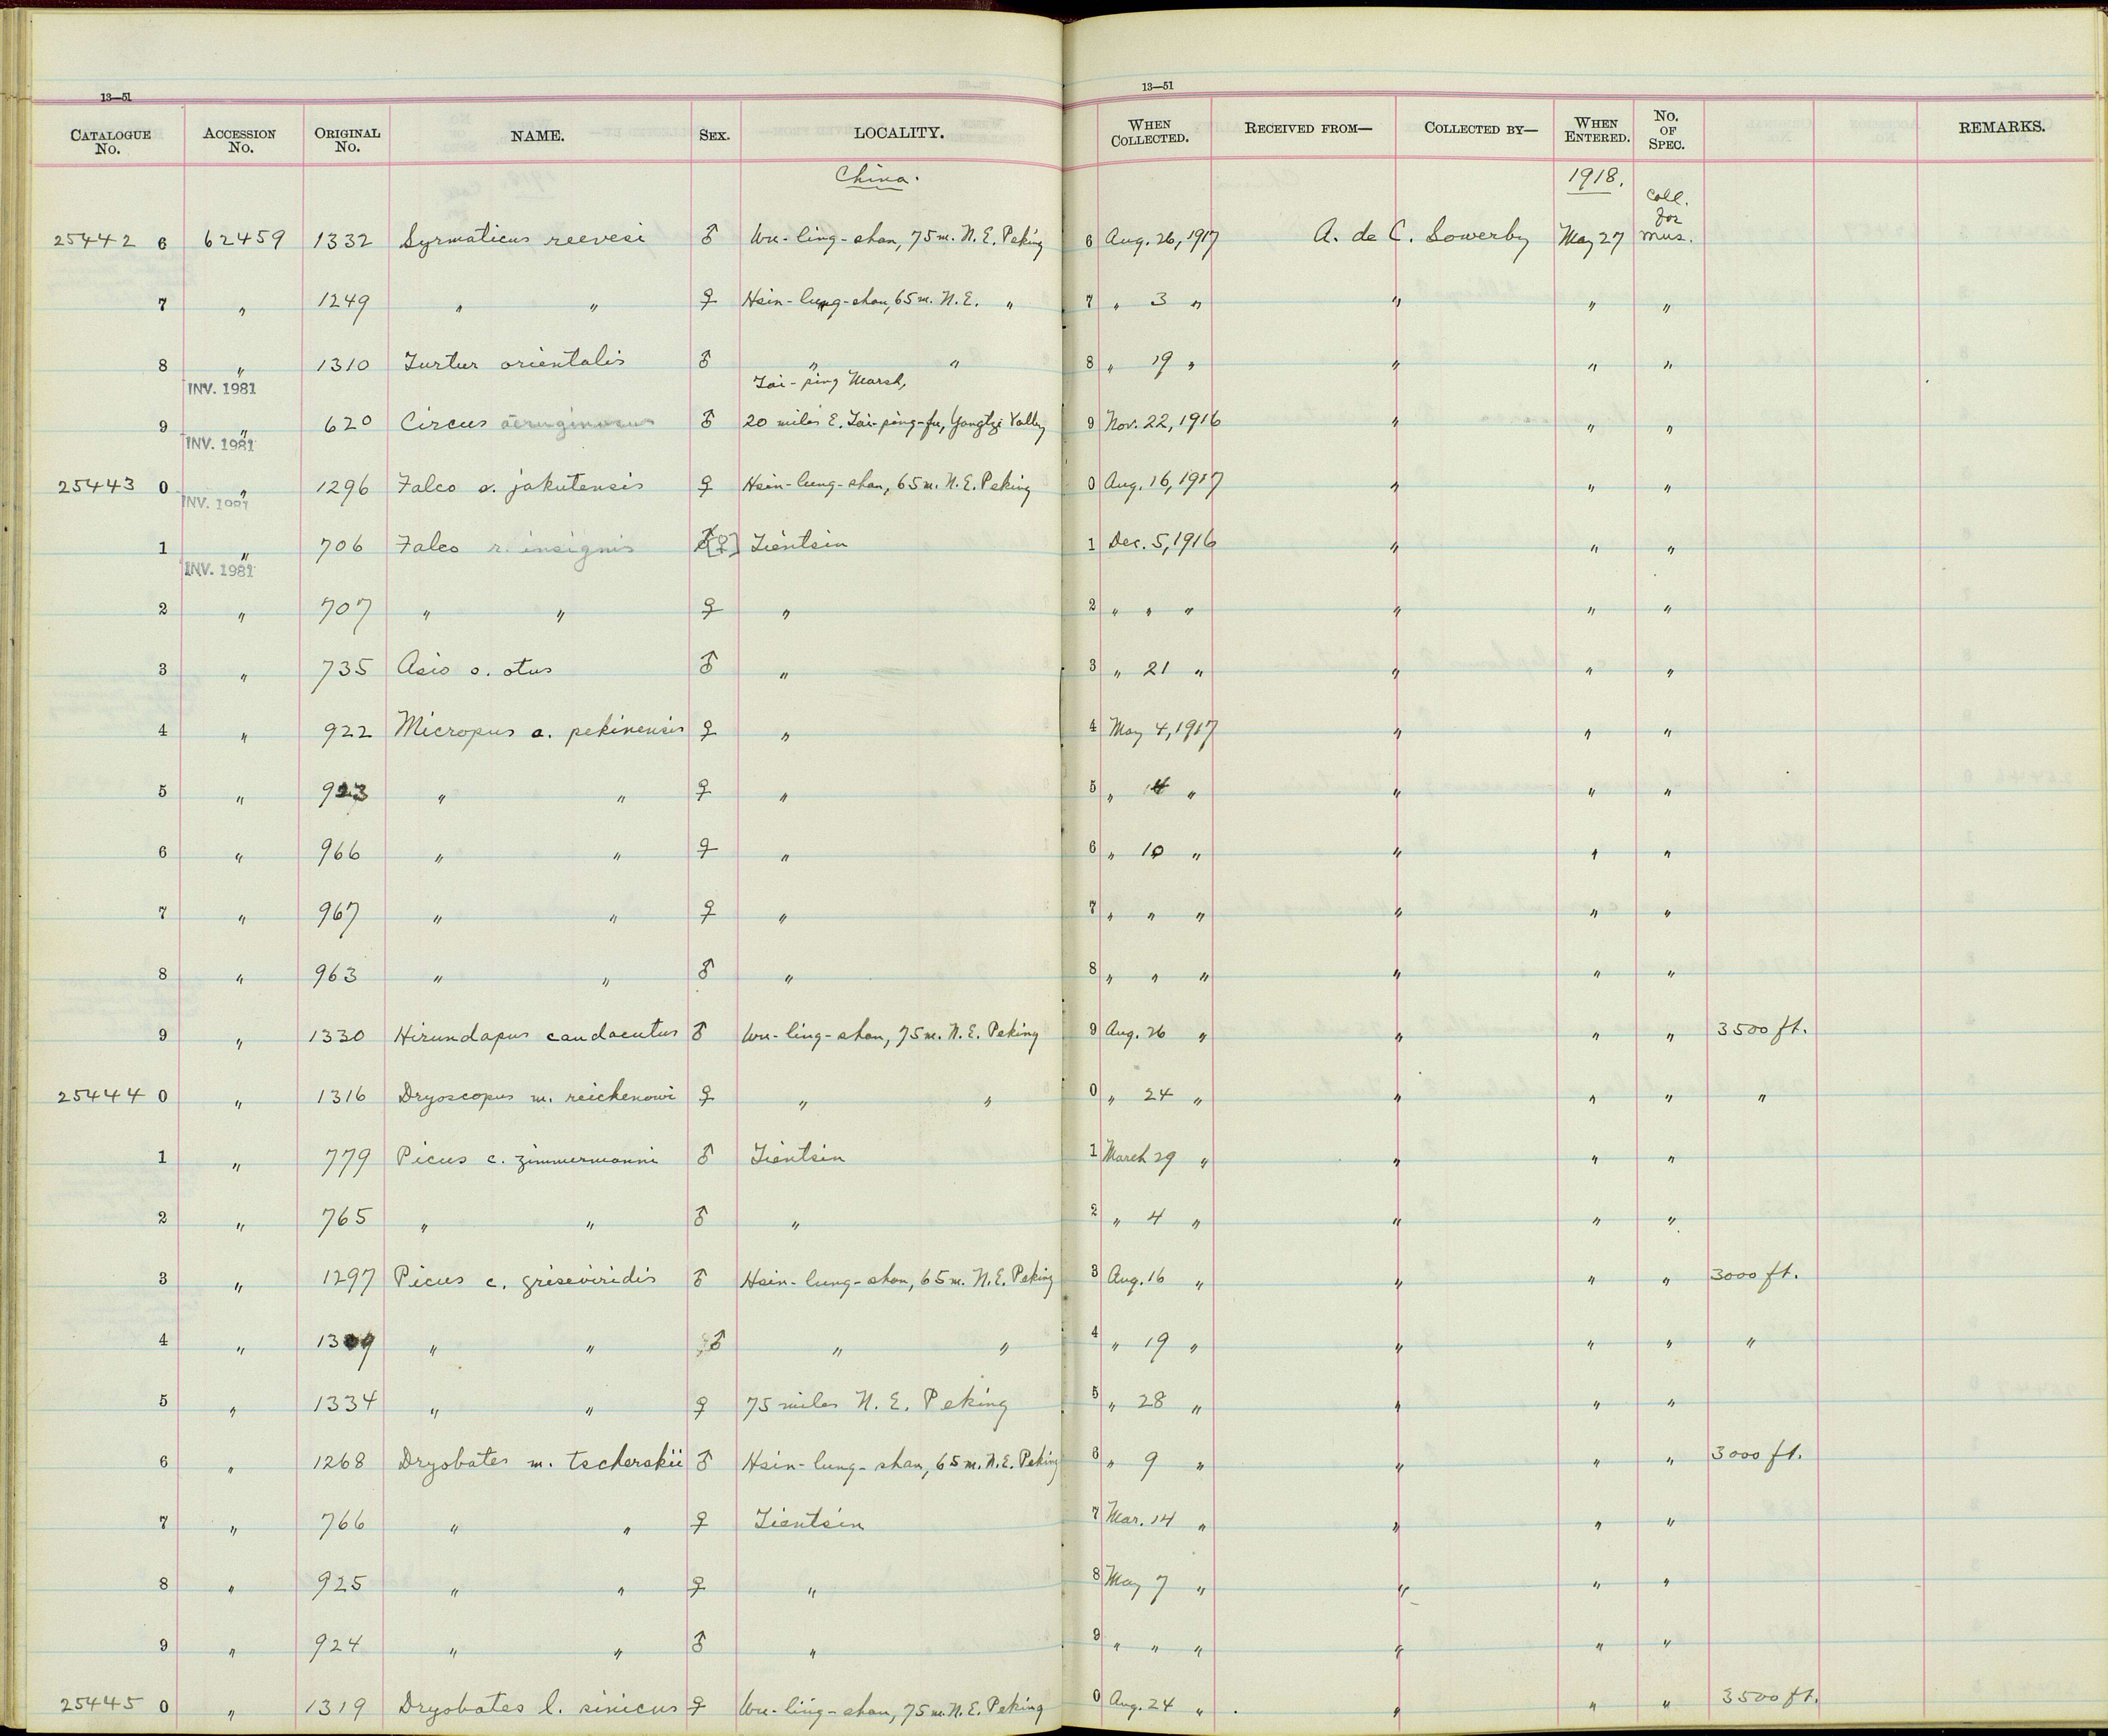 13—51 13—51
CATALOGUE No. ACCESSION No. ORIGINAL No. NAME. SEX. LOCALITY. WHEN COLLECTED. RECEIVED FROM— COLLECTED BY— WHEN ENTERED. No. OF SPEC. REMARKS.
China. 1918. Coll. for
25442 6 62459 1332 Syrmaticus reevesi ♂ Wu-ling-shan, 75 m. N.E. Peking 6 Aug. 26, 1917 A. de C. Sowerby May 27 Mus.
7 " 1249 " " ♀ Hsin-lung-shan, 65 m. N.E. " 7 " 3 " " " "
8 " 1310 Turtur orientalis ♂ " " 8 " 19 " " " "
INV. 1981 Tai-ping Marsh,
9 " 620 Circus aeruginosus ♂ 20 miles E. Tai-ping-fu, Yangtze Valley 9 Nov. 22, 1916 " " "
INV. 1981
25443 0 " 1296 Falco s. jakutensis ♀ Hsin-lung-shan, 65 m. N.E. Peking 0 Aug. 16, 1917 " " "
INV. 1981
1 " 706 Falco r. insignis ♂[♀] Tientsin 1 Dec. 5, 1916 " " "
INV. 1981
2 " 707 " " ♀ " 2 " " " " " "
3 " 735 Asio o. otus ♂ " 3 " 21 " " " "
4 " 922 Micropus a. pekinensis ♀ " 4 May 4, 1917 " " "
5 " 923 " " ♀ " 5 " 4 " " " "
6 " 966 " " ♀ " 6 " 10 " " " "
7 " 967 " " ♀ " 7 " " " " " "
8 " 963 " " ♂ " 8 " " " " " "
9 " 1330 Hirundapus caudacutus ♂ Wu-ling-shan, 75 m. N.E. Peking 9 Aug. 26 " " " " 3500 ft.
25444 0 " 1316 Dryoscopus m. reichenowi ♀ " " 0 " 24 " " " " "
1 " 779 Picus c. zimmermanni ♂ Tientsin 1 March 29 " " " "
2 " 765 " " ♂ " 2 " 4 " " " "
3 " 1297 Picus c. griseoviridis ♂ Hsin-lung-shan, 65 m. N.E. Peking 3 Aug. 16 " " " " 3000 ft.
4 " 1309 " " ♂ " " 4 " 19 " " " " "
5 " 1334 " " ♀ 75 miles N.E. Peking 5 " 28 " " " "
6 " 1268 Dryobates m. tscherskii ♂ Hsin-lung-shan, 65 m. N.E. Peking 6 " 9 " " " " 3000 ft.
7 " 766 " " ♀ Tientsin 7 Mar. 14 " " " "
8 " 925 " " ♀ " 8 May 7 " " " "
9 " 924 " " ♂ " 9 " " " " " "
25445 0 " 1319 Dryobates l. sinicus ♀ Wu-ling-shan, 75 m. N.E. Peking 0 Aug. 24 " " " " 3500 ft.